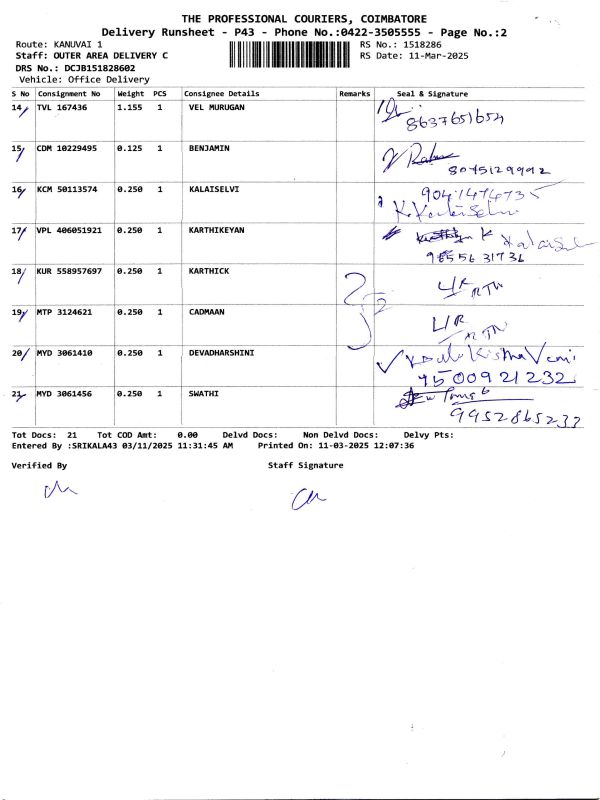 THE PROFESSIONAL COURIERS, COIMBATORE
Delivery Runsheet - P43 - Phone No.:0422-3505555 - Page No.:2
Route: KANUVAI 1 RS No.: 1518286
Staff: OUTER AREA DELIVERY C RS Date: 11-Mar-2025
DRS No.: DCJB151828602
Vehicle: Office Delivery
S No Consignment No Weight PCS Consignee Details Remarks Seal & Signature
14 TVL 167436 1.155 1 VEL MURUGAN
8637651654
15 CDM 10229495 0.125 1 BENJAMIN
8075129992
16 KCM 50113574 0.250 1 KALAISELVI 9041474735
K. Kalai Selvi
17 VPL 406051921 0.250 1 KARTHIKEYAN
9655631736
18 KUR 558957697 0.250 1 KARTHICK L/R RTN
19 MTP 3124621 0.250 1 CADMAAN L/R RTN
20 MYD 3061410 0.250 1 DEVADHARSHINI
9500921232
21 MYD 3061456 0.250 1 SWATHI
9952865233
Tot Docs: 21 Tot COD Amt: 0.00 Delvd Docs: Non Delvd Docs: Delvy Pts:
Entered By :SRIKALA43 03/11/2025 11:31:45 AM Printed On: 11-03-2025 12:07:36
Verified By Staff Signature